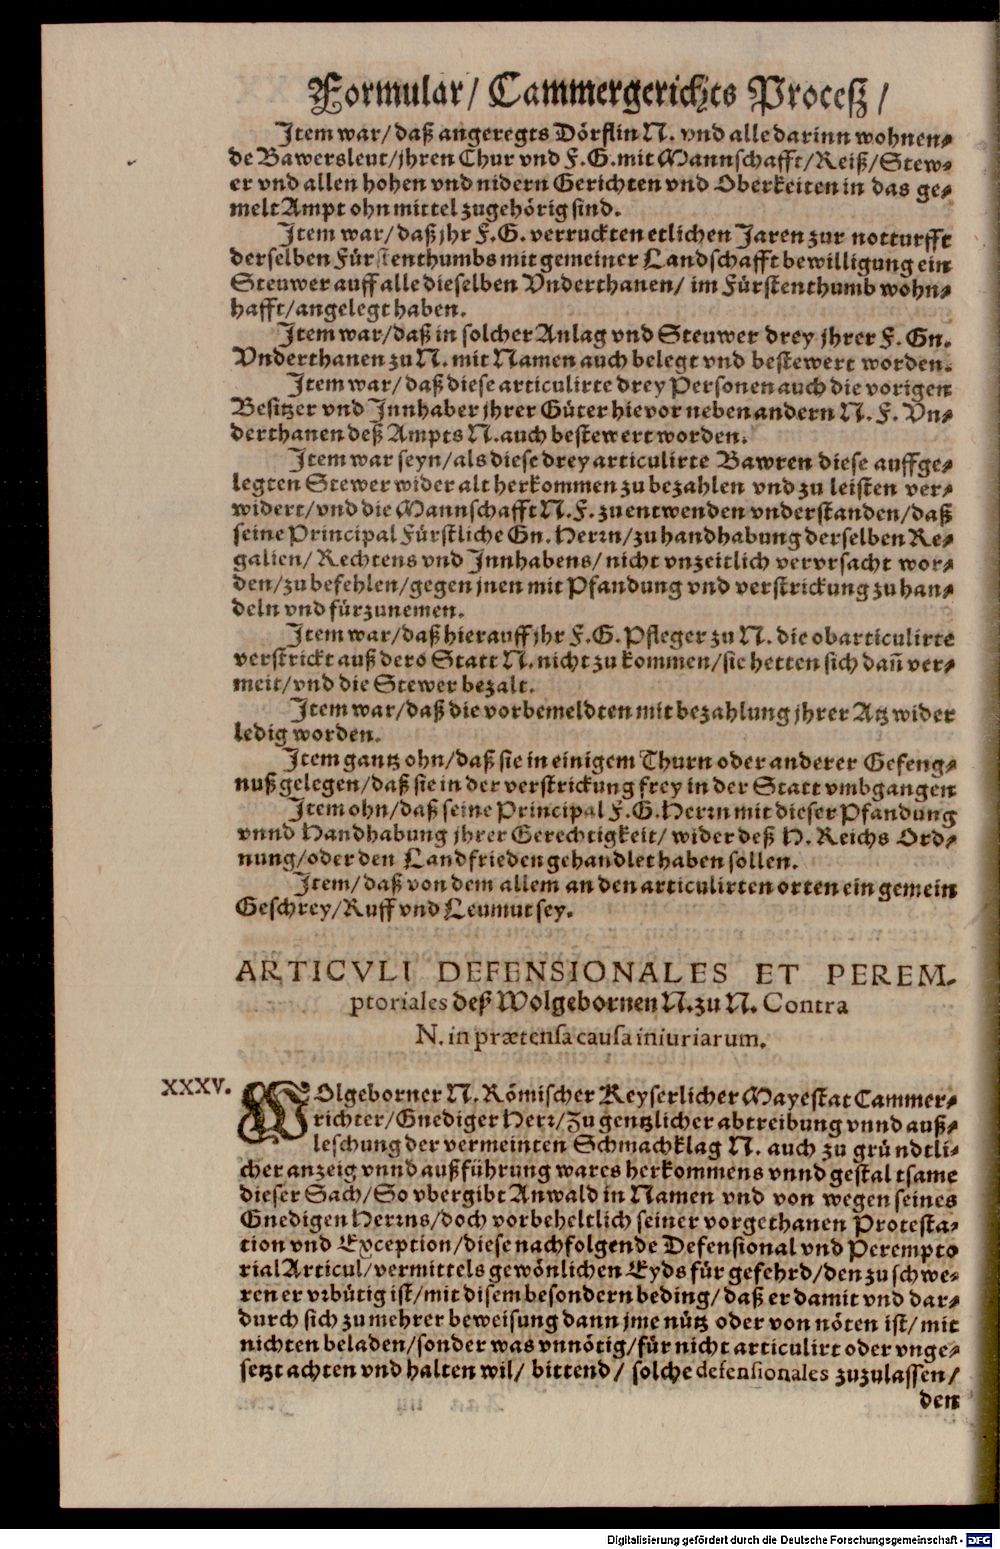 Formular/ Cammergerichts Proceß/
Item war/ daß angeregts Dörflin N. vnd alle darinn wohnen⸗
de Bawersleut/ jhren Chur vnd F. G. mit Mannschafft/ Reiß/ Stew⸗
er vnd allen hohen vnd nidern Gerichten vnd Oberkeiten in das ge⸗
melt Ampt ohn mittel zugehörig sind.
Item war/ daß jhr F. G. verruckten etlichen Jaren zur notturfft
derselben Fürstenthumbs mit gemeiner Landschafft bewilligung ein
Steuwer auff alle dieselben Vnderthanen/ im Fürstenthumb wohn⸗
hafft/ angelegt haben.
Item war/ daß in solcher Anlag vnd Steuwer drey jhrer F. Gn.
Vnderthanen zu N. mit Namen auch belegt vnd bestewert worden.
Item war/ daß diese articulirte drey Personen auch die vorigen
Besitzer vnd Innhaber jhrer Güter hievor neben andern N. F. Vn⸗
derthanen deß Ampts N. auch bestewert worden.
Item war seyn/ als diese drey articulirte Bawren diese auffge⸗
legten Stewer wider alt herkommen zu bezahlen vnd zu leisten ver⸗
widert/ vnd die Mannschafft N. F. zu entwenden vnderstanden/ daß
seine Principal Fürstliche Gn. Herrn/ zu handhabung derselben Re⸗
galien/ Rechtens vnd Innhabens/ nicht vnzeitlich vervrsacht wor⸗
den/ zu befehlen/ gegen jnen mit Pfandung vnd verstrickung zu han⸗
deln vnd fürzunemen.
Item war/ daß hierauff jhr F. G. Pfleger zu N. die obarticulirte
verstrickt auß ders Statt N. nicht zu kommen/ sie hetten sich dañ ver⸗
meit/ vnd die Stewer bezalt.
Item war/ daß die vorbemeldten mit bezahlung jhrer Atz wider
ledig worden.
Item gantz ohn/ daß sie in einigem Thurn oder anderer Gefeng⸗
nuß gelegen/ daß sie in der verstrickung frey in der Statt vmbgangen
Item ohn/ daß seine Principal F. G. Herrn mit dieser Pfandung
vnnd Handhabung jhrer Gerechtigkeit/ wider deß H. Reichs Ord⸗
nung/ oder den Landfrieden gehandlet haben sollen.
Item/ daß von dem allem an den articulirten orten ein gemein
Geschrey/ Ruff vnd Leumut sey.
ARTICVLI DEFENSIONALES ET PEREM-
ptoriales deß Wolgebornen N. zu N. Contra
N. in prætensa causa iniuriarum.
XXXV. WOlgeborner N. Römischer Keyserlicher Mayestat Cammer⸗
richter/ Gnediger Herr/ Zu gentzlicher abtreibung vnnd auß⸗
leschung der vermeinten Schmachklag N. auch zu gründtli⸗
cher anzeig vnnd außführung wares herkommens vnnd gestaltsame
dieser Sach/ So vbergibt Anwald in Namen vnd von wegen seines
Gnedigen Herrns/ doch vorbeheltlich seiner vorgethanen Protesta⸗
tion vnd Exception/ diese nachfolgende Defensional vnd Perempto
rial Articul/ vermittels gewönlichen Eyds für gefehrd/ den zu schwe⸗
ren er vrbütig ist/ mit disem besondern beding/ daß er damit vnd dar⸗
durch sich zu mehrer beweisung dann jme nütz oder von nöten ist/ mit
nichten beladen/ sonder was vnnötig/ für nicht articulirt oder vnge⸗
setzt achten vnd halten wil/ bittend/ solche defensionales zuzulassen/
den
Digitalisierung gefördert durch die Deutsche Forschungsgemeinschaft - DFG